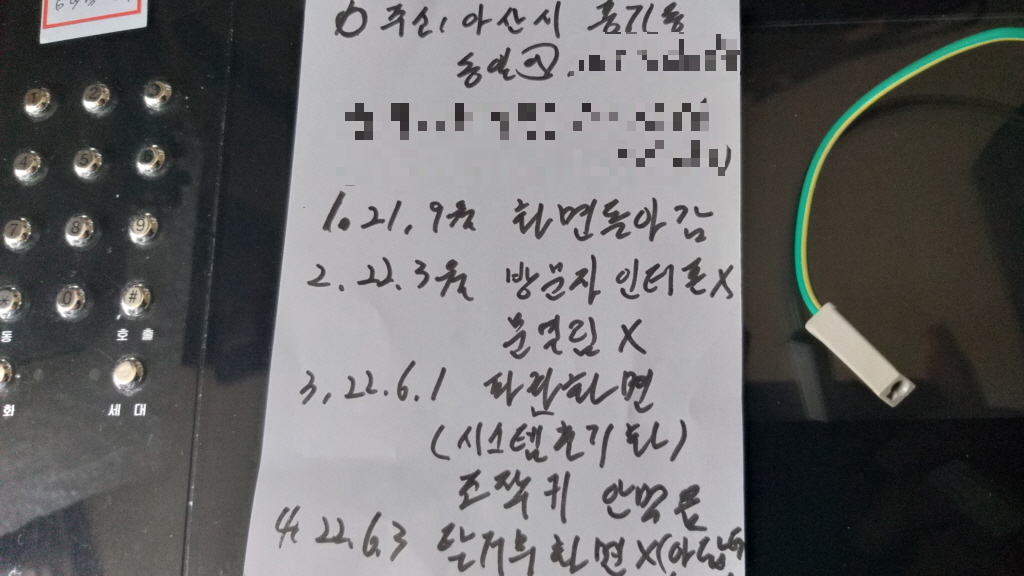 주소, 아산시 풍기동
동일
1. 21. 9월 화면돌아감
2. 22. 3월 방문자 인터폰 X
문열림 X
3, 22.6.1 파란화면
(시스템초기화)
조작키 안먹음
4. 22.6.3 탈거후 화면 X
1 2 3
4 5 6
7 8 9
* 0 #
동 호출
화 세대